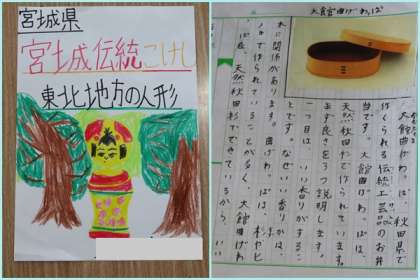 宮城県
宮城伝統こけし
東北地方の人形
大館曲げわっぱ
大館曲げわっぱは、秋田県で
作られる伝統工芸品のお弁
当です。大館曲げわっぱは、
天然秋田杉で作られています。
まず良さを 説明します。
一つ目は、いい香りがするこ
とです。なぜ、いい香りかは、
木に関係があります。曲げわっぱは、
で作られていることが多く、大館曲げわ
っぱは、天然秋田杉でできているから、